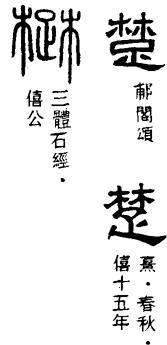 楚
郙閣頌
楚
熹·春秋·
僖十五年
楚
三體石經·
僖公